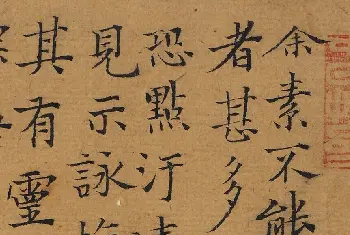 余素不能
者甚多
恐點汙
見示詠
其有靈